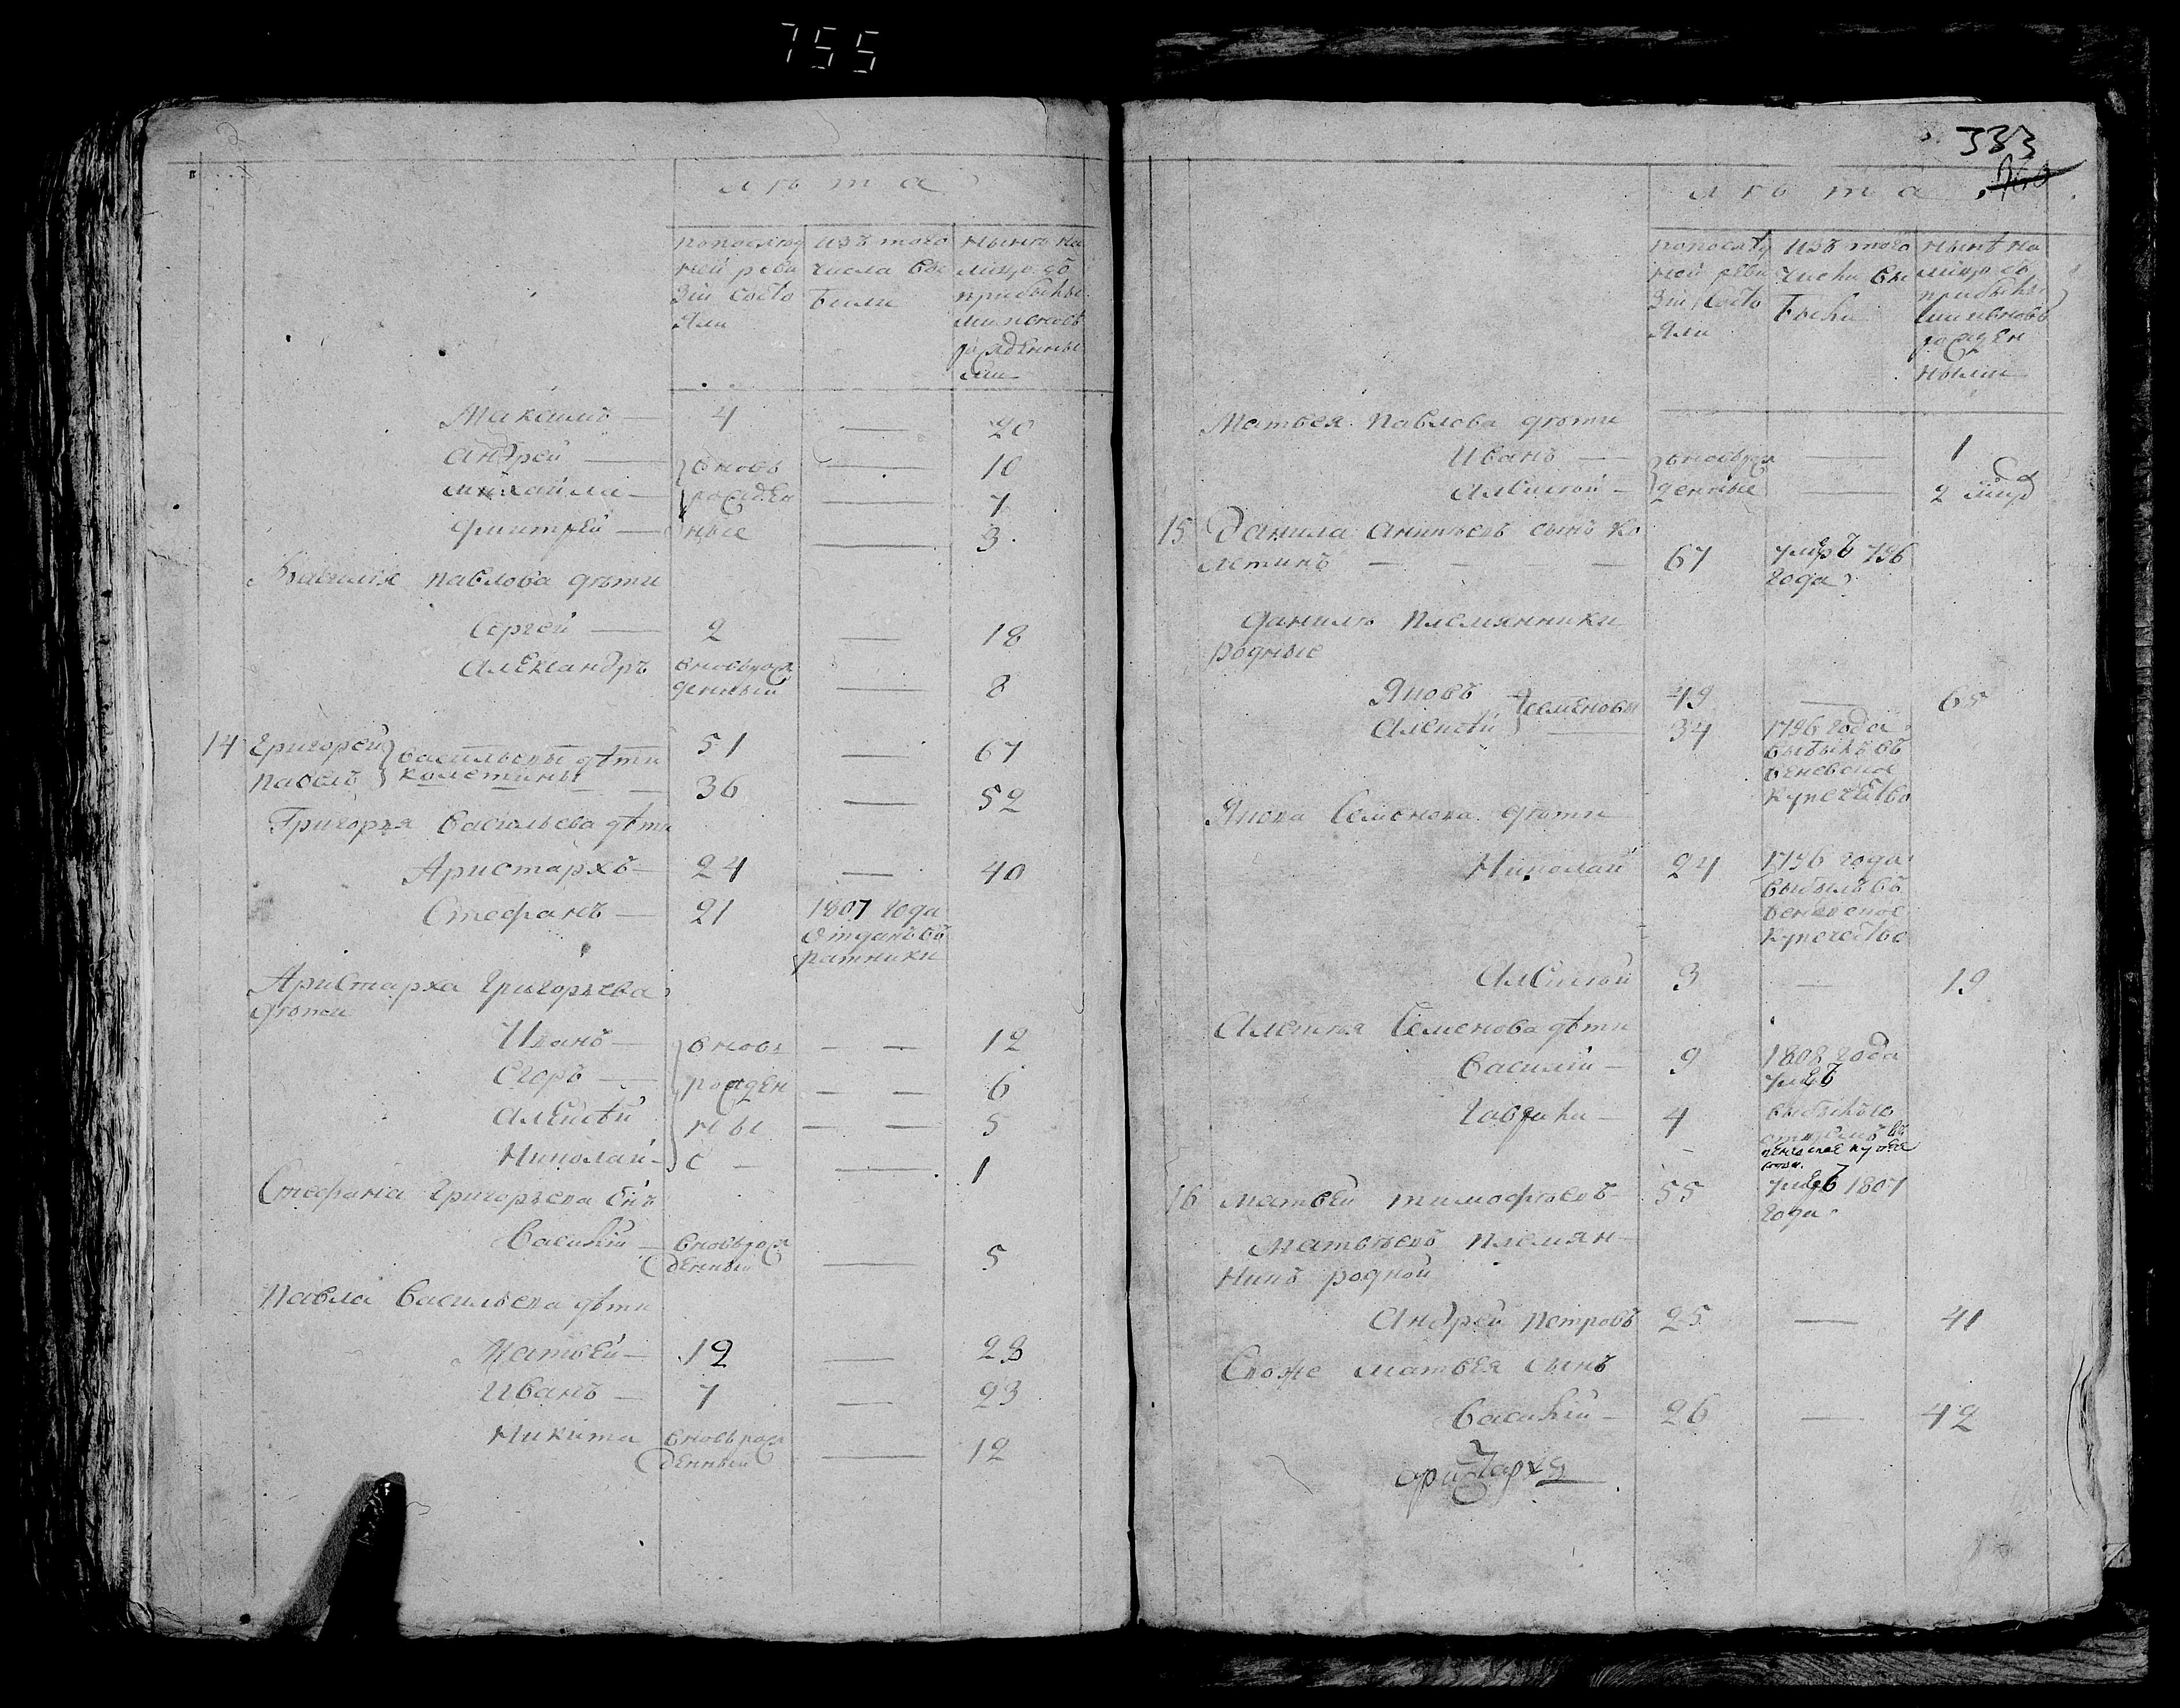 755
лѣта
попослед
ней реви
зіи состо
яли
изъ того
числа вы
были
нынѣ на
лицо съ
прибылы
ми и вновь
рожденны
ми
Максимъ — 4 — 20
Андрей — вновь — 10
Михайла — рожден — 7
Дмитрей — ные — 3
Василья Павлова дѣти
Сергей — 2 — 18
Александръ вновь рож
денный — 8
14 Григорей Васильевы дѣти 51 — 67
Павелъ Колетины 36 — 52
Григорья Васильева дѣти
Аристархъ — 24 — 40
Стефанъ — 21 1807 года
отданъ въ
ратники
Аристарха Григорьева
дѣти
Иванъ — вновь — — 12
Егоръ — рожден — — 6
Алексѣй ны — — 5
Николай — е — 1
Стефана Григорьева сынъ
Василій — вновь рож
денный — 5
Павла Васильева дѣти
Матвей — 12 — 28
Иванъ — 7 — 23
Никита вновь рож
денный — 12
333
лѣта
попослед
ней реви
зіи состо
яли
изъ того
числа вы
были
нынѣ на
лицо съ
прибылы
ми и вновь
рожден
ными
Матвея Павлова дѣти
Иванъ — вновь рож — 1
Алексѣй — денные — 2
15 Данила Антиповъ сынъ Ко
летинъ — — — 67 умеръ 796
года
Данилы племянники
родные
Яковъ Семеновы 49 — 65
Алексѣй — 34 1796 года
выбылъ въ
Веневское
купечество
Якова Семенова дѣти
Николай 24 1796 года
выбылъ въ
Веневское
купечество
Алексѣй 3 — 19
Алексѣя Семенова дѣти
Василій — 9 1808 года
умеръ
Гаврила — 4 выбылъ со
отцемъ въ
16 Матвей Тимофѣевъ — 55 умеръ 1807
года
Матвѣевъ племян-
никъ родной
Андрей Петровъ 25 — 41
Евоже Матвея сынъ
Василій — 26 — 42